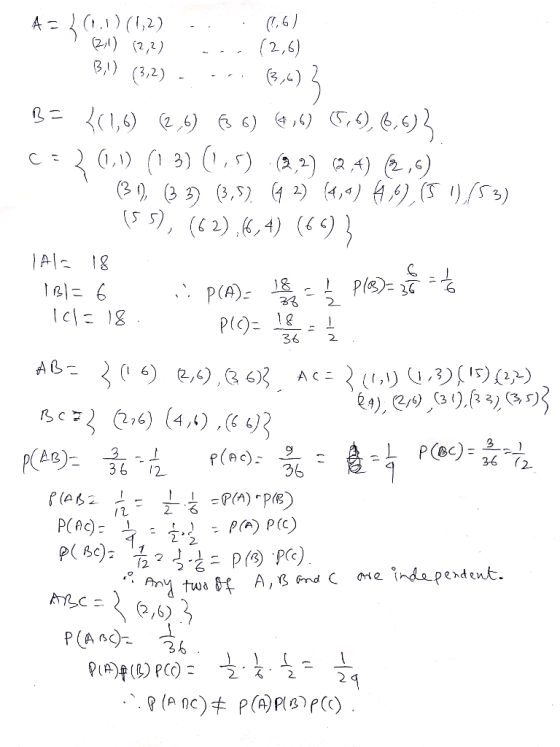 A = { (1,1) (1,2) - - . (1,6)
(2,1) (2,2) - - - (2,6)
(3,1) (3,2) - - - - (3,6) }
B = { (1,6) (2,6) (3 6) (4,6) (5,6), (6,6) }
C = { (1,1) (1 3) (1,5) (2,2) (2,4) (2,6)
(3 1), (3 3) (3,5) (4 2) (4,4) (4,6), (5 1), (5 3)
(5 5), (6 2), (6,4) (6 6) }
|A| = 18
|B| = 6 ∴ P(A) = 18/36 = 1/2 P(B) = 6/36 = 1/6
|C| = 18. P(C) = 18/36 = 1/2.
AB = { (1 6) (2,6), (3 6) }, AC = { (1,1) (1,3) (1 5) (2,2)
(2 4), (2,6), (3 1), (3 3), (3,5) }
BC = { (2,6) (4,6), (6 6) }
P(AB) = 3/36 = 1/12 P(AC) = 9/36 = = 1/4 P(BC) = 3/36 = 1/12
P(AB = 1/12 = 1/2 · 1/6 = P(A) · P(B)
P(AC) = 1/4 = 1/2 · 1/2 = P(A) P(C)
P(BC) = 1/12 = 1/2 · 1/6 = P(B) · P(C).
∴ Any two of A, B and C are independent.
ABC = { (2,6) }
P(ABC) = 1/36.
P(A) P(B) P(C) = 1/2 · 1/6 · 1/2 = 1/24
∴ P(ABC) ≠ P(A) P(B) P(C).